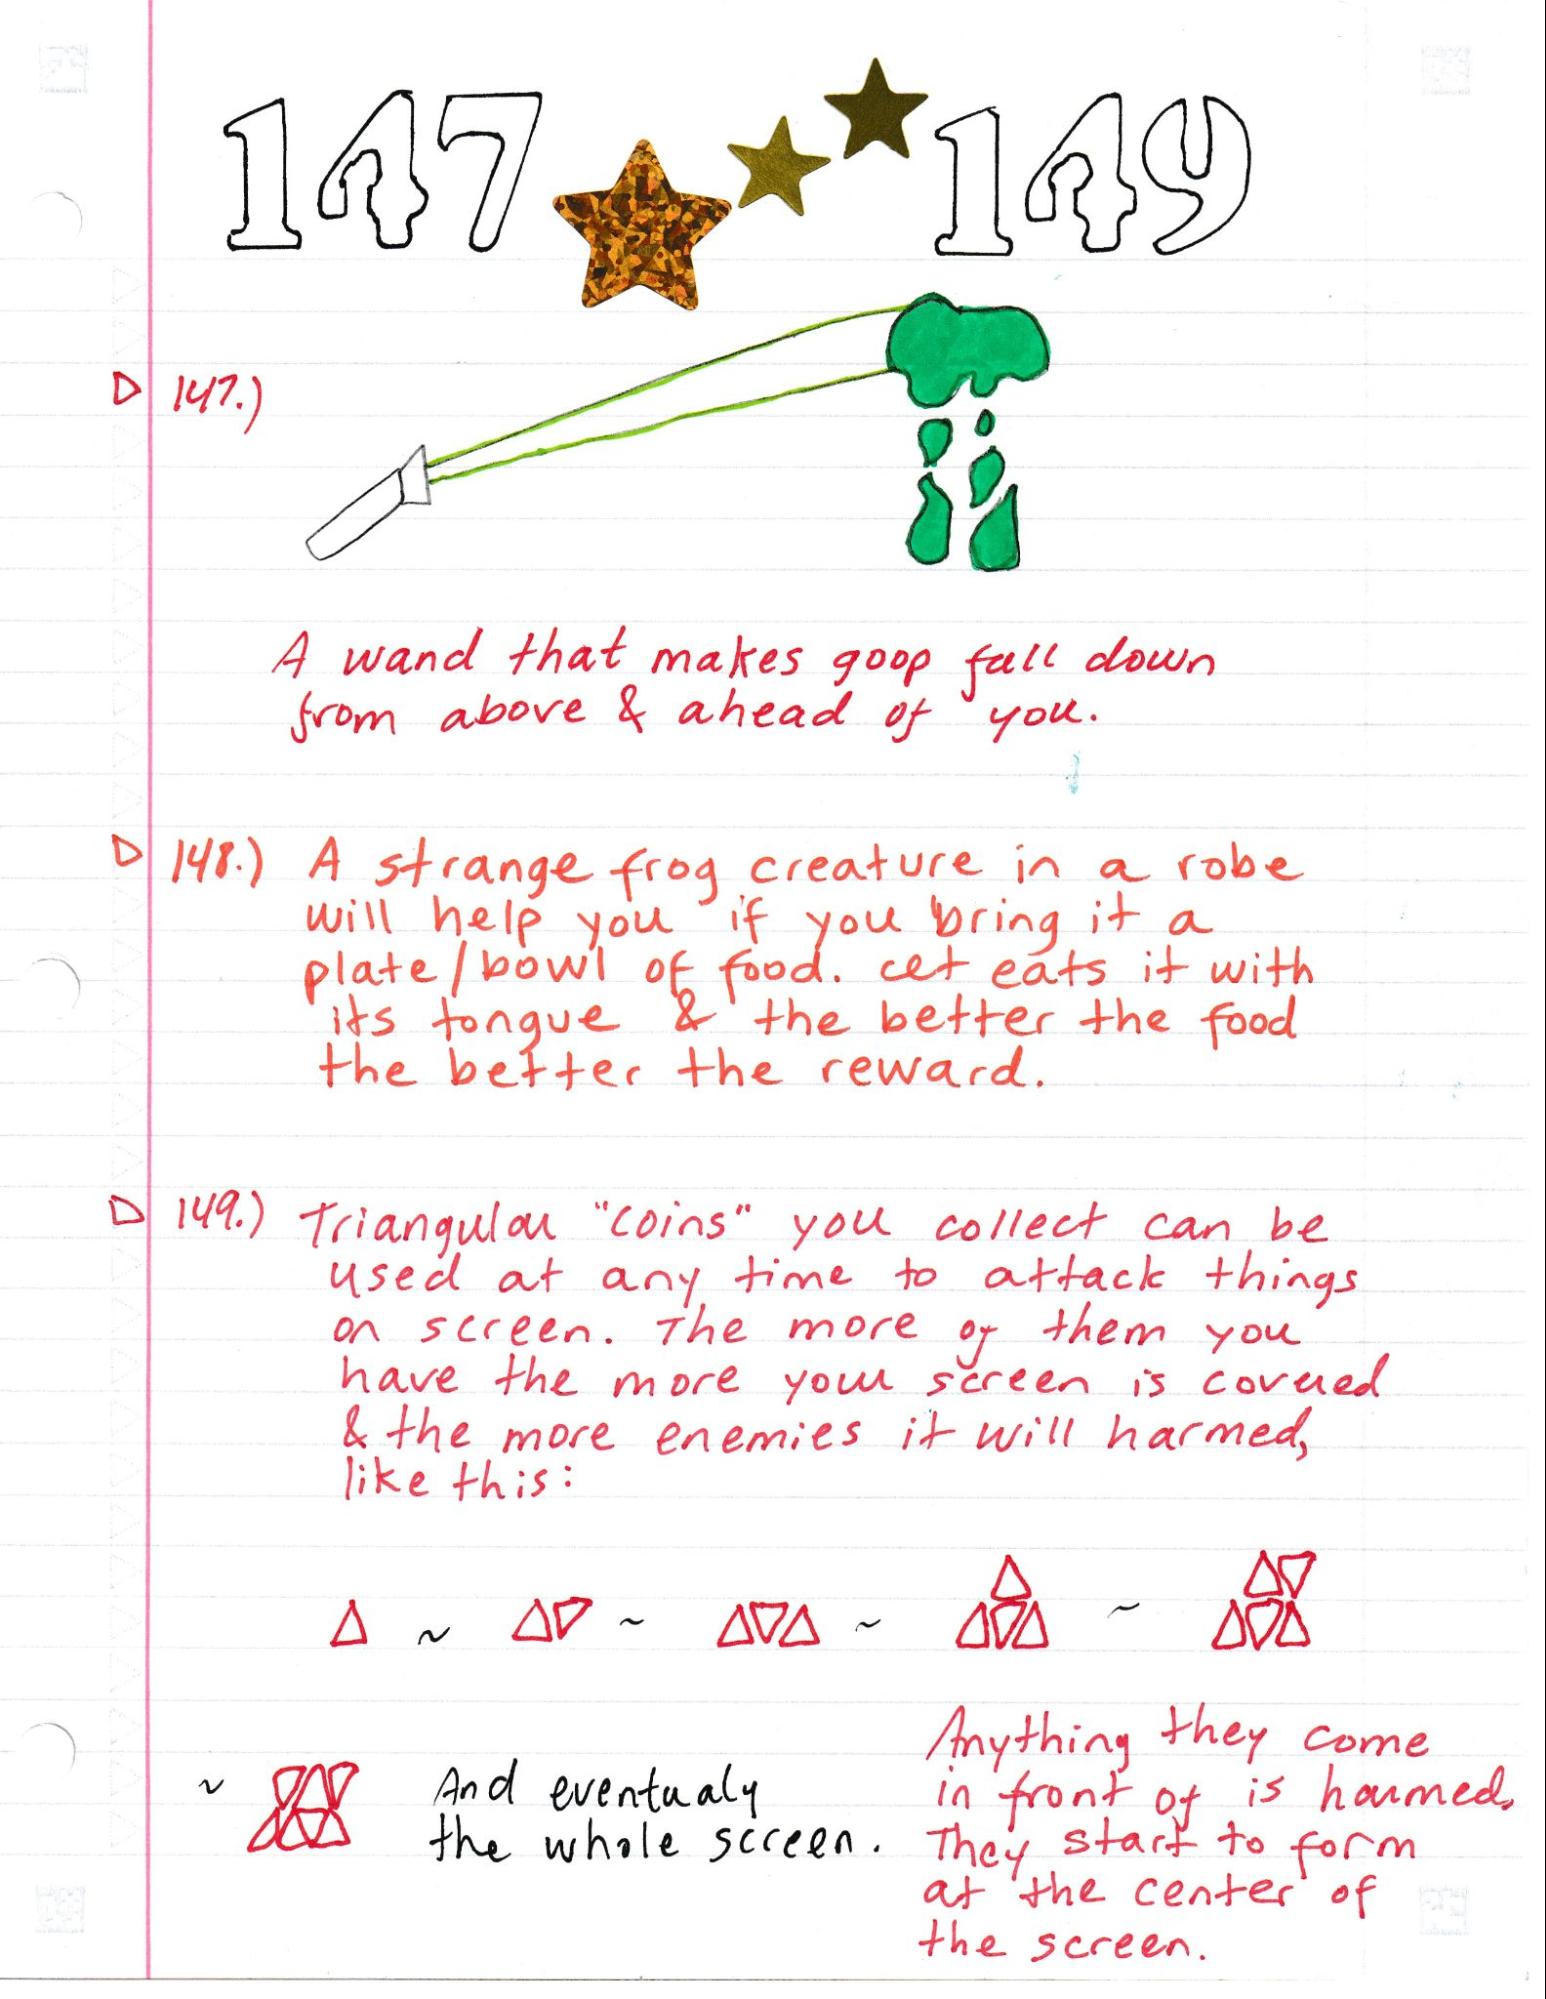 147 149
147.)
A wand that makes goop fall down
from above & ahead of you.
148.) A strange frog creature in a robe
will help you if you bring it a
plate/bowl of food. It eats it with
its tongue & the better the food
the better the reward.
149.) Triangular "coins" you collect can be
used at any time to attack things
on screen. The more of them you
have the more your screen is covered
& the more enemies it will harmed,
like this:
~ ~ ~ ~
~
And eventualy
the whole screen.
Anything they come
in front of is harmed.
They start to form
at the center of
the screen.